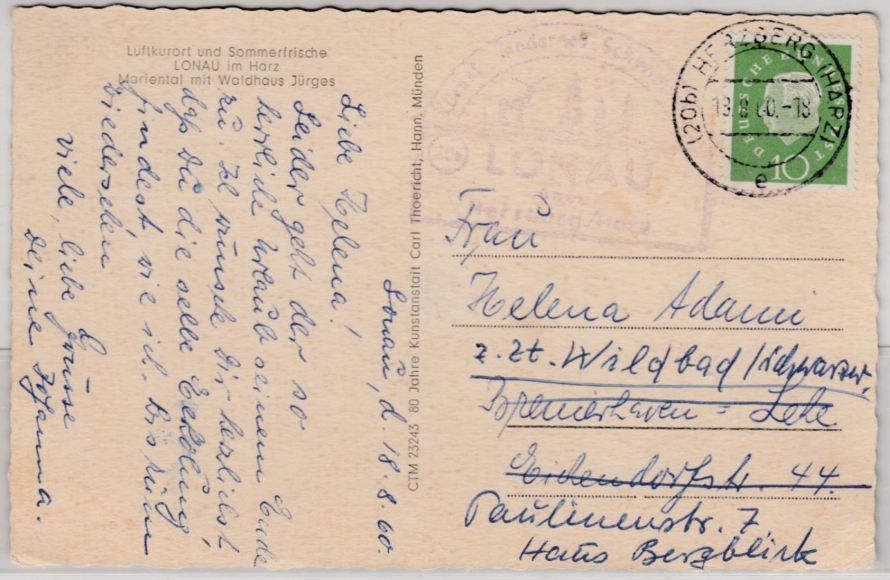 Luftkurort und Sommerfrische
LONAU im Harz
Mariental mit Waldhaus Jürges
Lonau, d. 18.8.60.
Liebe Helena!
Leider geht der so
herrliche Urlaub seinem Ende
zu. Ich wünsche Dir herzlichst,
daß Du die selbe Erholung
findest, wie ich. Bis zum
Wiedersehen
viele, liebe Grüsse
Deine Johanna.
CTM 23243 80 Jahre Kunstanstalt Carl Thoericht, Hann. Münden
LONAU
über
Herzberg/Harz
(20b) HERZBERG (HARZ)
18.8.60.-18
e
DEUTSCHE BUNDESPOST
10
Frau
Helena Adami
z. Zt. Wildbad/Schwarzw.
Bremerhaven = Lehe
Eichendorfstr. 44.
Paulinenstr. 7
Haus Bergblick